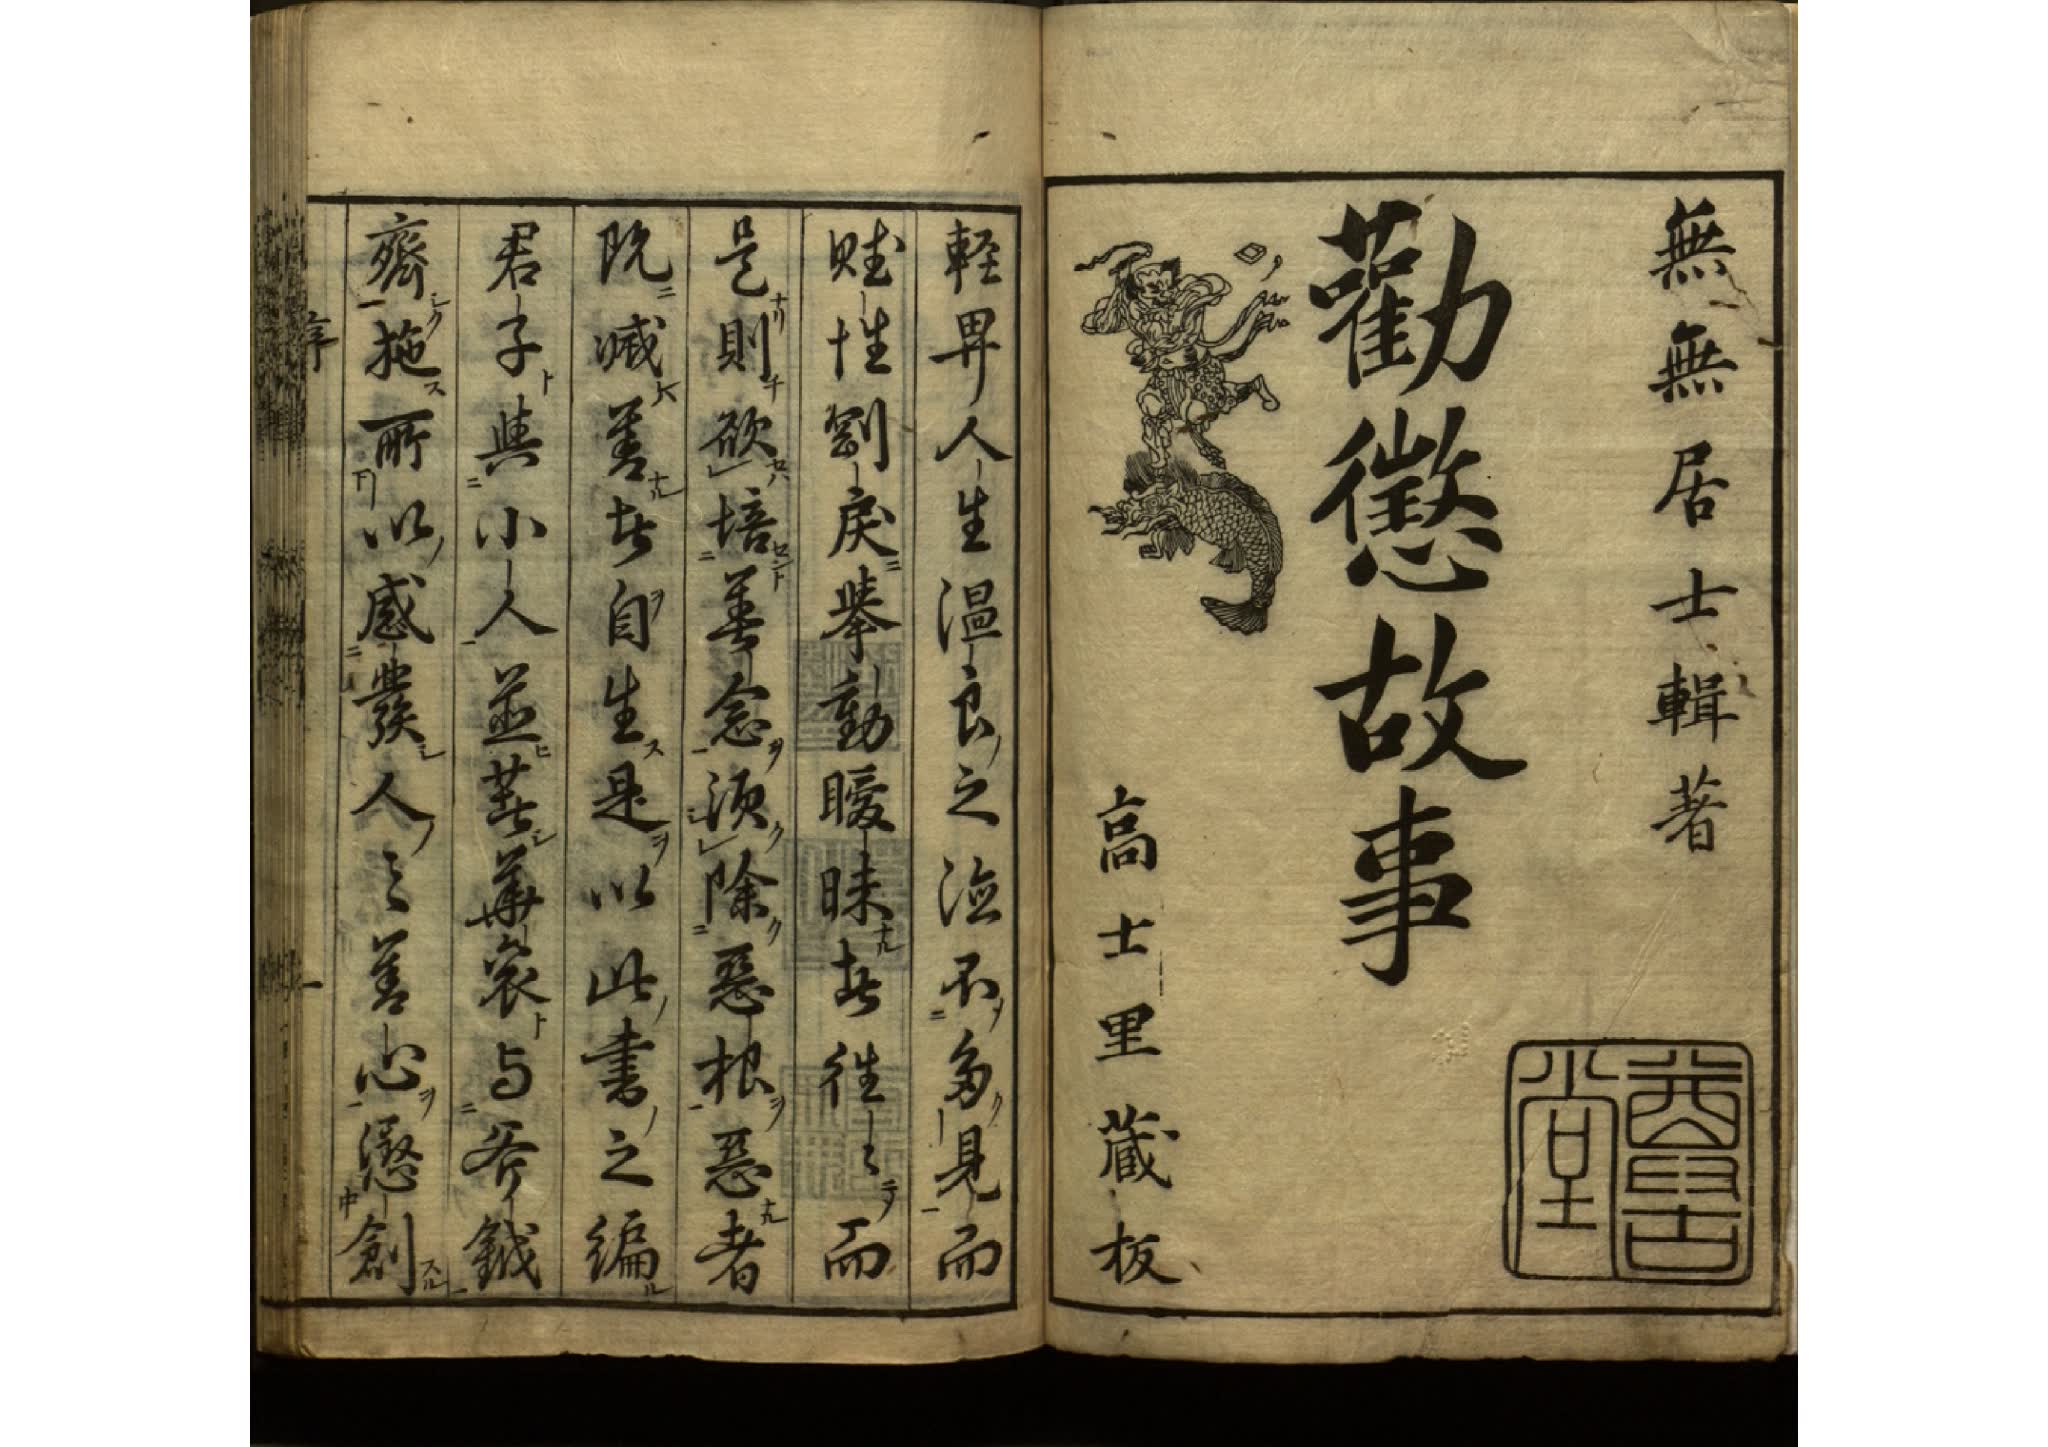 無無居士輯著
勸懲故事
高士里蔵板
輕卑人生温良之泣不多見而
賦性劉戾挙動曖昧者徃〻而
是則欲培善念須除惡根惡者
既滅善者自生是以此書之編
君子與小人並甚華衮与斧鉞
齊施所以感發人之善心懲創
序
一